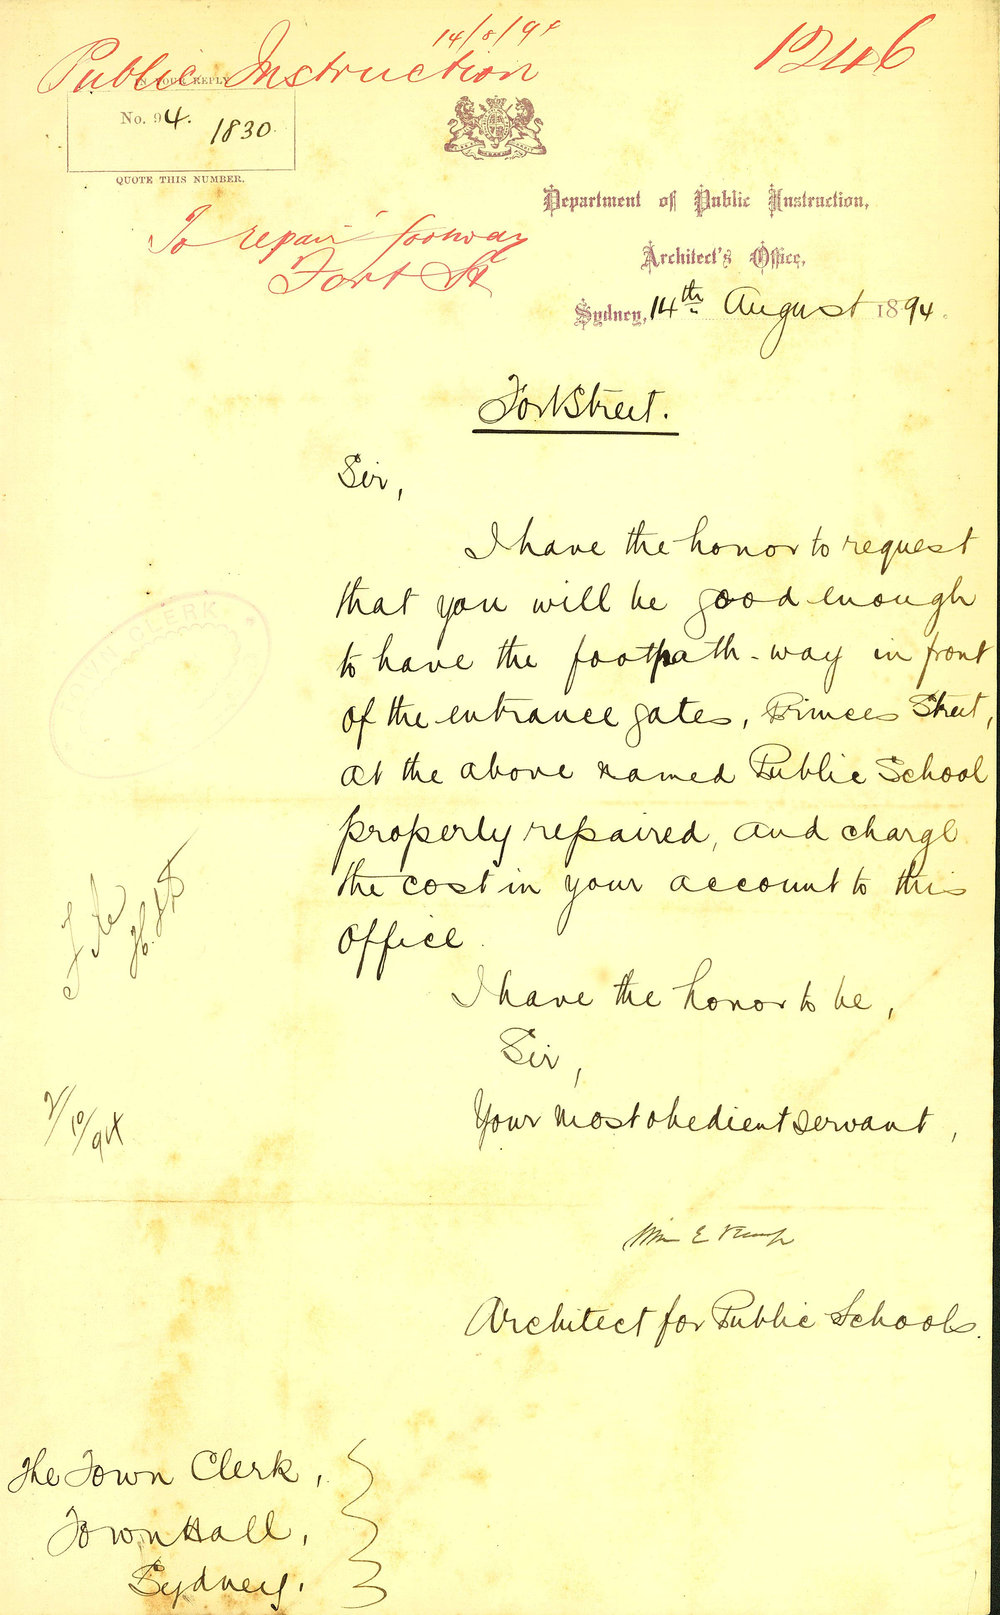 14/8/94
Public Instruction
1246
IN YOUR REPLY
No. 94. 1830.
QUOTE THIS NUMBER.
Department of Public Instruction,
Architect's Office,
Sydney, 14th August 1894.
To repair footway
Fort St
Fort Street.
Sir,
I have the honor to request
that you will be good enough
to have the footpath-way in front
of the entrance gates, Princes Street,
at the above named Public School
properly repaired, and charge
the cost in your account to this
Office.
I have the honor to be,
Sir,
Your most obedient servant,
Wm E Kemp
Architect for Public Schools.
TOWN CLERK
File
2/10/94
The Town Clerk,
Town Hall,
Sydney.